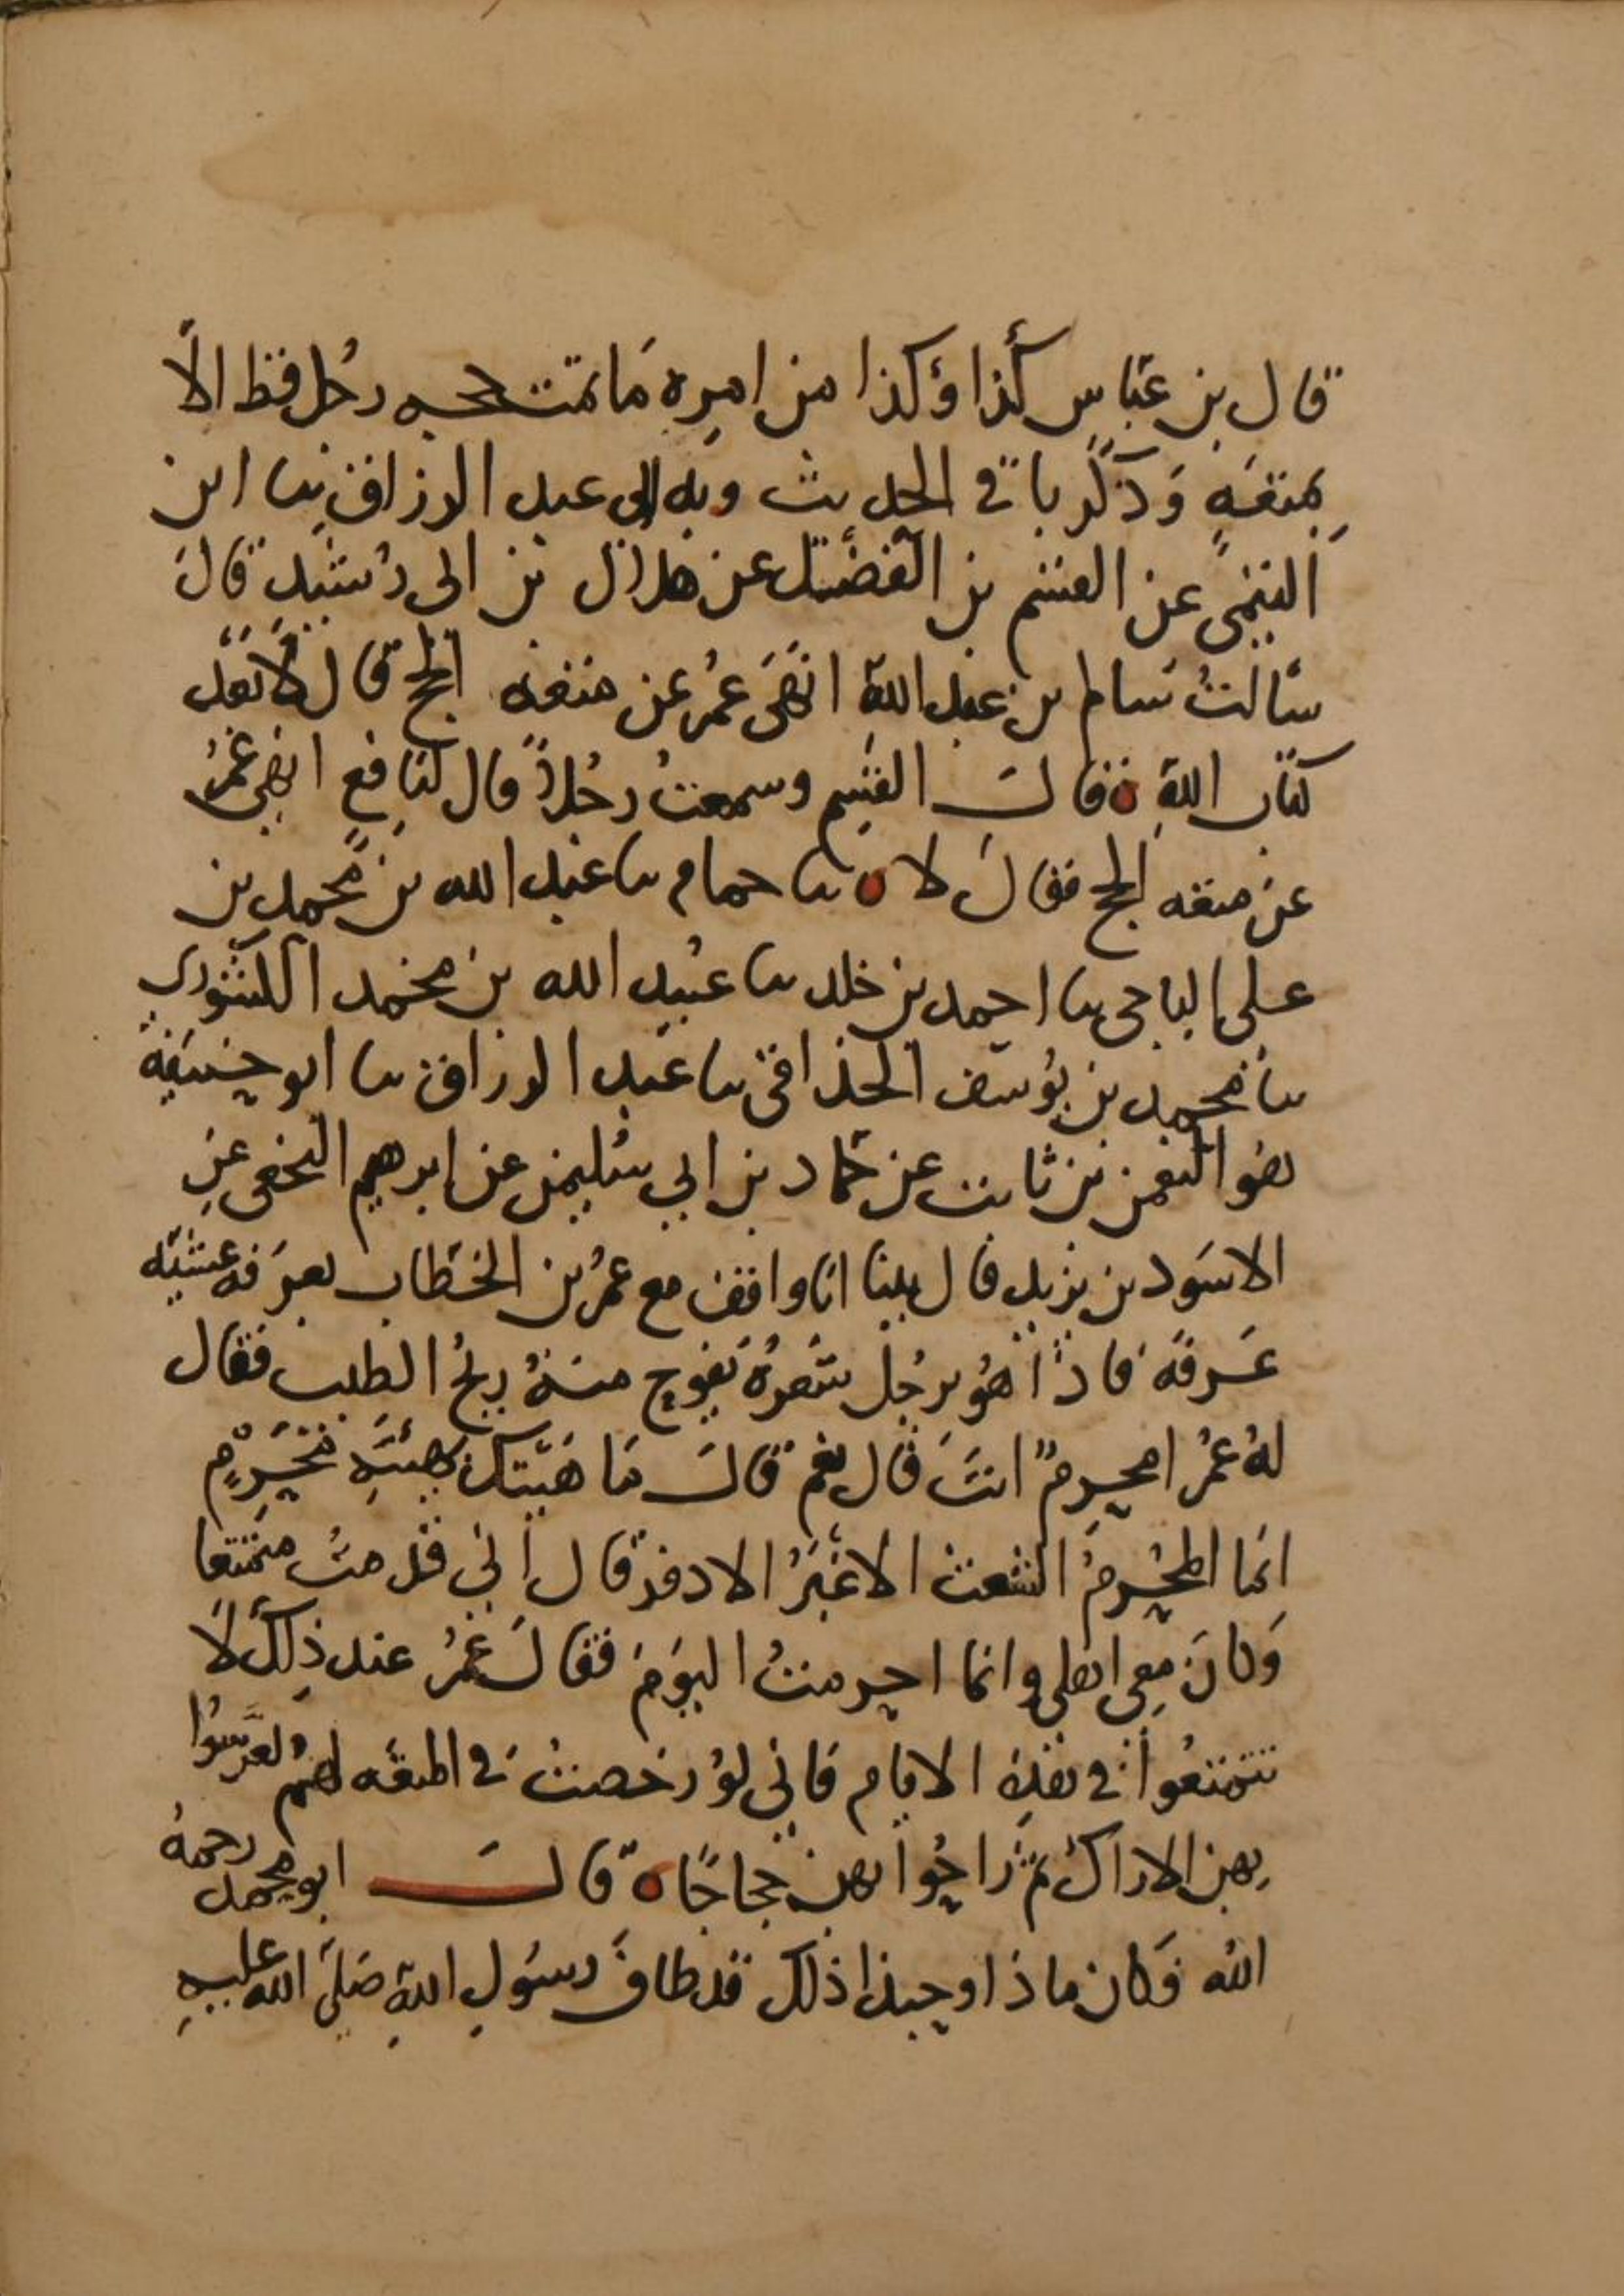 قال بن عباس كذا وكذا من امره ما تمت حجه رجل قط الا
بمتعه وذكر باقي الحديث وبه الى عبد الرزاق نا ابن
التيمي عن القسم بن الفضل عن هلال بن ابي رشيد قال
سالت سالم بن عبد الله انهى عمر عن متعه الحج قال لا بعد
كتاب الله ه فقال القسم وسمعت رجلا قال لنافع انهى عمر
عن متعه الحج فقال لا ه نا حمام نا عبد الله بن محمد بن
علي الباجي نا احمد بن خلد نا عبيد الله بن محمد الكشوري
نا محمد بن يوسف الحذاقي نا عبد الرزاق نا ابو حنيفة
هو النعمن بن ثابت عن حماد بن ابي سليمن عن ابرهيم النخعي عن
الاسود بن يزيد قال بينا انا واقف مع عمر بن الخطاب بعرفه عشيه
عرفه فاذا هو برجل شعره يفوح منه ريح الطيب فقال
له عمر امحرم انت قال نعم قال ما هيتك بهيئه محرم
انما المحرم الشعث الاغبر الادفر قال اني قدمت متمتعا
وكان معي اهلي وانما احرمت اليوم فقال عمر عند ذلك لا
تتمتعوا في هذه الايام فاني لو رخصت في المتعه لهم لعرسوا
بهن الاراك ثم راحوا بهن حجاجا ه قال ابو محمد رحمه
الله فكان ماذا وحبذا ذلك قد طاف رسول الله صلى الله عليه